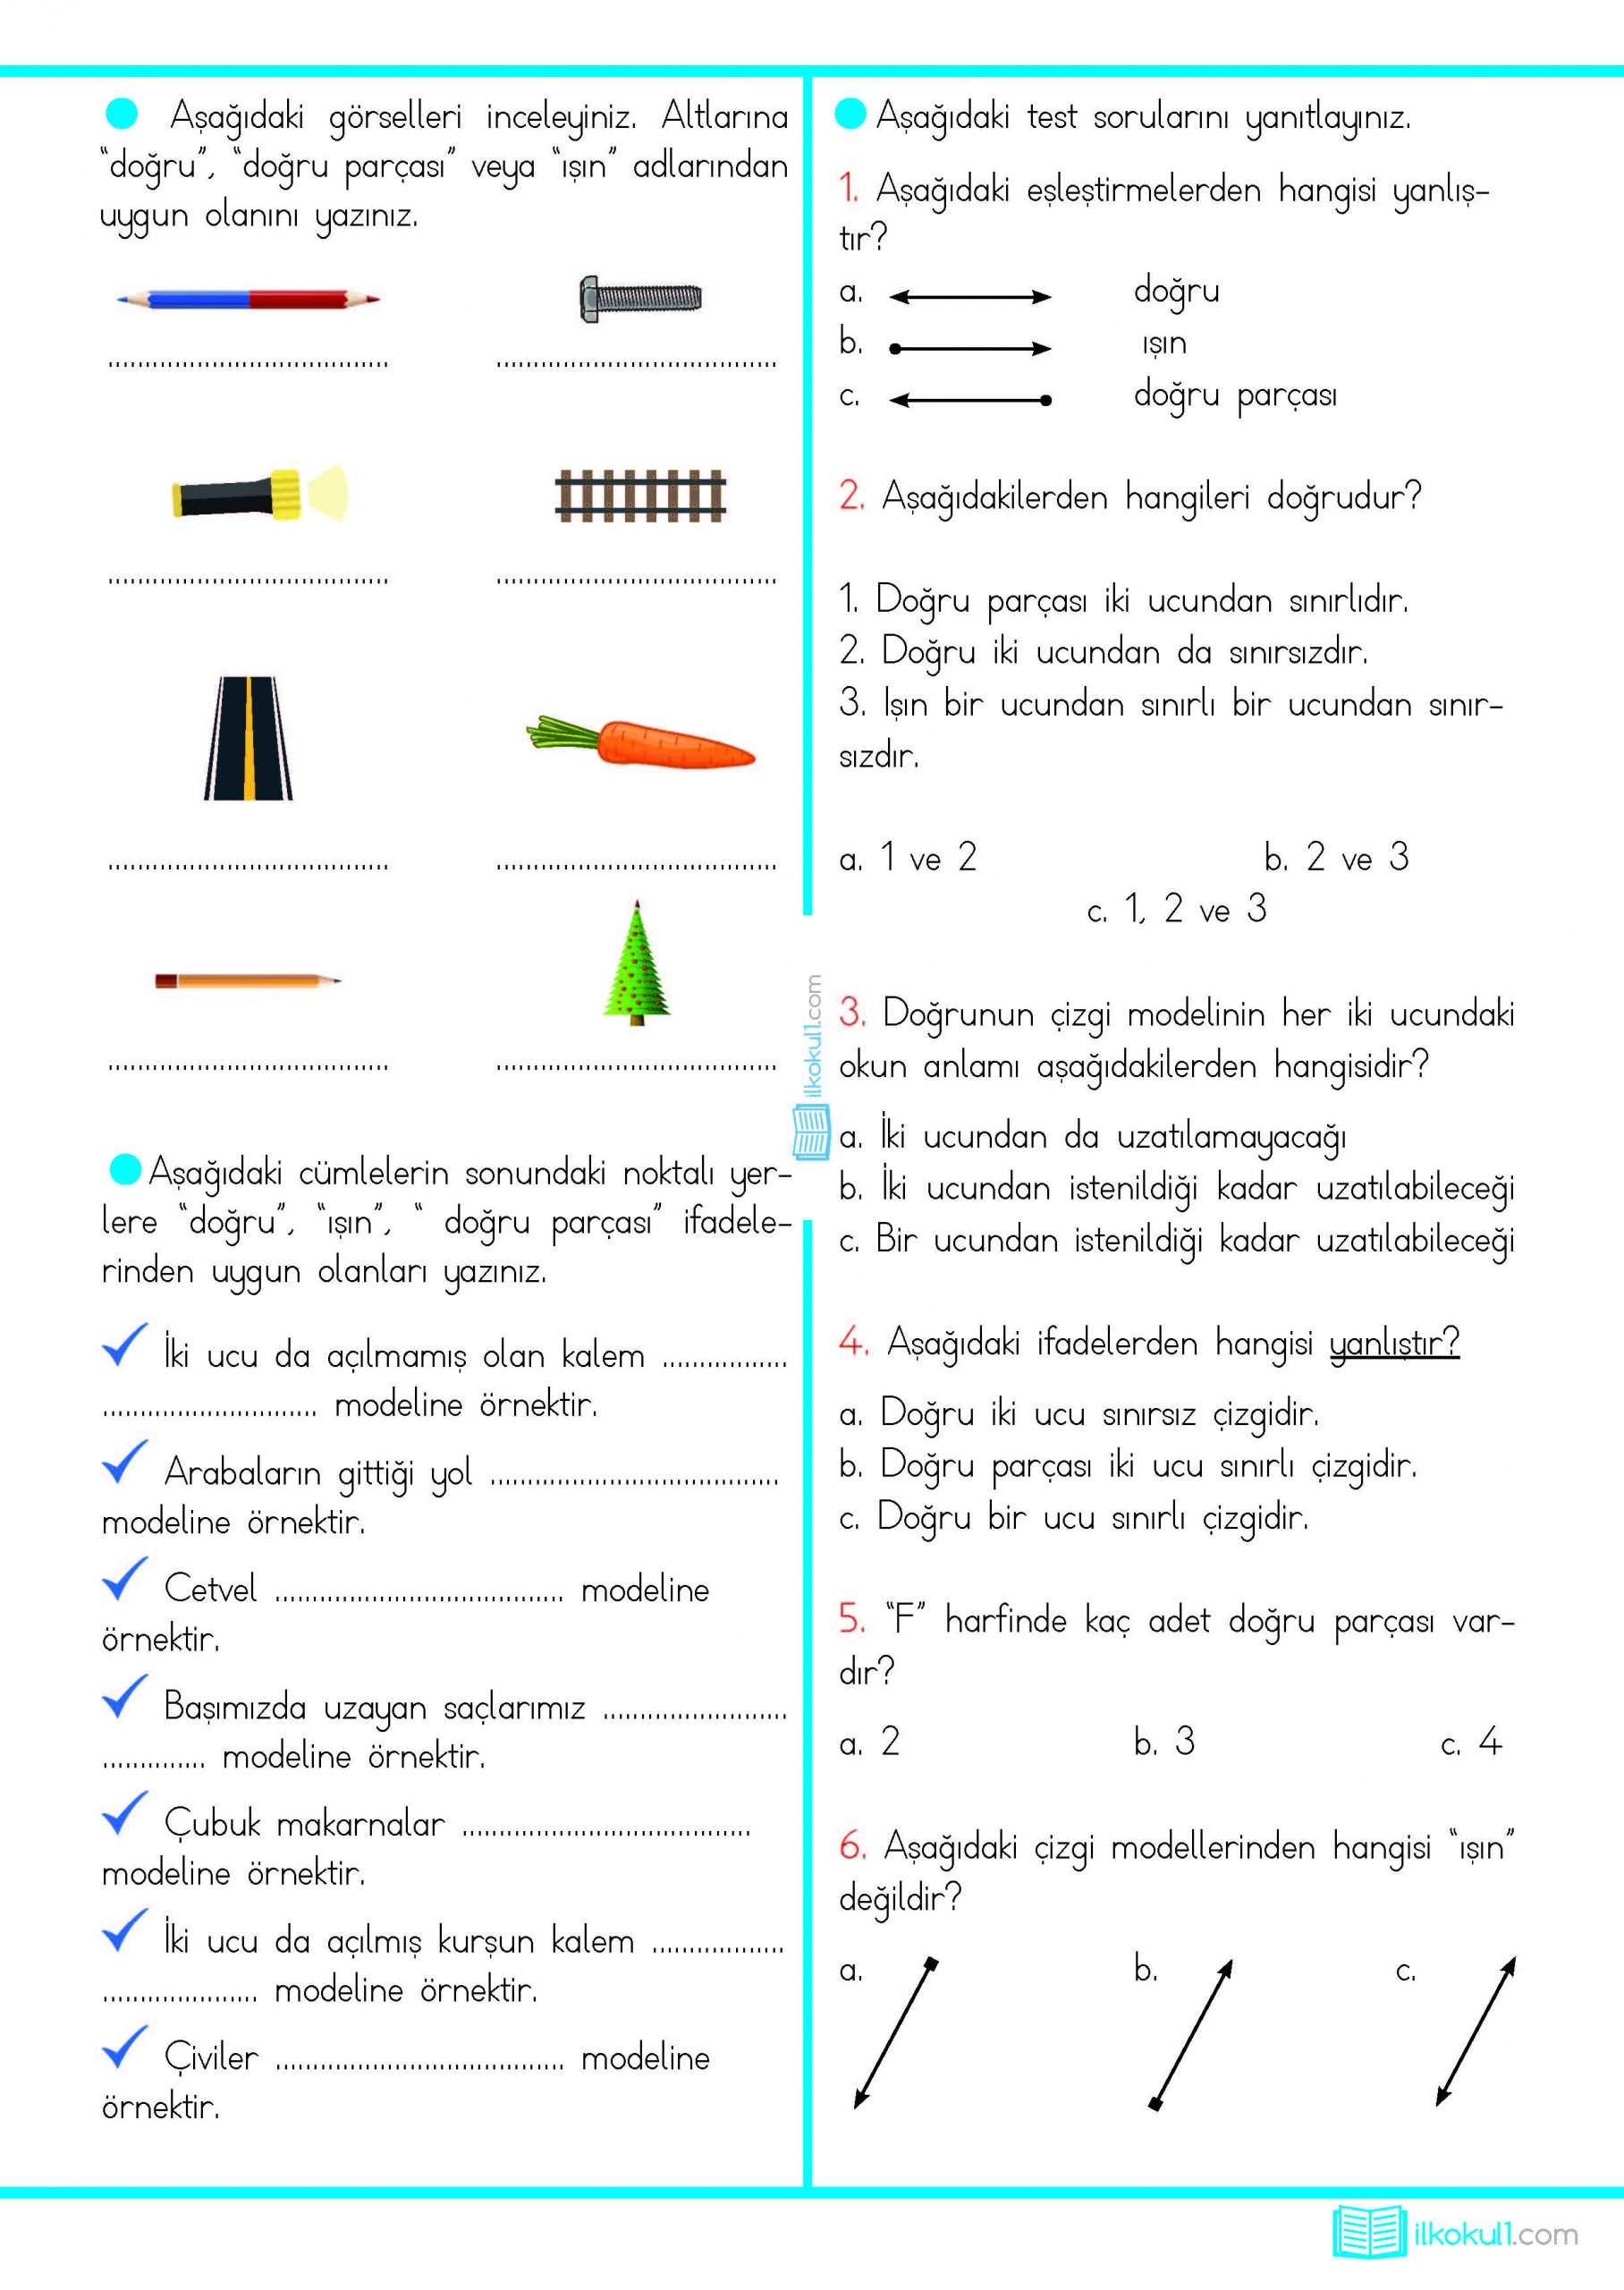 Aşağıdaki görselleri inceleyiniz. Altlarına
“doğru”, “doğru parçası” veya “ışın” adlarından
uygun olanını yazınız.
......................................
......................................
......................................
......................................
......................................
......................................
......................................
......................................
Aşağıdaki cümlelerin sonundaki noktalı yer-
lere “doğru”, “ışın”, “ doğru parçası” ifadele-
rinden uygun olanları yazınız.
İki ucu da açılmamış olan kalem .................
............................. modeline örnektir.
Arabaların gittiği yol .......................................
modeline örnektir.
Cetvel ....................................... modeline
örnektir.
Başımızda uzayan saçlarımız .........................
.............. modeline örnektir.
Çubuk makarnalar .......................................
modeline örnektir.
İki ucu da açılmış kurşun kalem ..................
..................... modeline örnektir.
Çiviler ....................................... modeline
örnektir.
ilkokul1.com
Aşağıdaki test sorularını yanıtlayınız.
1. Aşağıdaki eşleştirmelerden hangisi yanlış-
tır?
a. doğru
b. ışın
c. doğru parçası
2. Aşağıdakilerden hangileri doğrudur?
1. Doğru parçası iki ucundan sınırlıdır.
2. Doğru iki ucundan da sınırsızdır.
3. Işın bir ucundan sınırlı bir ucundan sınır-
sızdır.
a. 1 ve 2 b. 2 ve 3
c. 1, 2 ve 3
3. Doğrunun çizgi modelinin her iki ucundaki
okun anlamı aşağıdakilerden hangisidir?
a. İki ucundan da uzatılamayacağı
b. İki ucundan istenildiği kadar uzatılabileceği
c. Bir ucundan istenildiği kadar uzatılabileceği
4. Aşağıdaki ifadelerden hangisi yanlıştır?
a. Doğru iki ucu sınırsız çizgidir.
b. Doğru parçası iki ucu sınırlı çizgidir.
c. Doğru bir ucu sınırlı çizgidir.
5. “F” harfinde kaç adet doğru parçası var-
dır?
a. 2 b. 3 c. 4
6. Aşağıdaki çizgi modellerinden hangisi “ışın”
değildir?
a. b. c.
ilkokul1.com